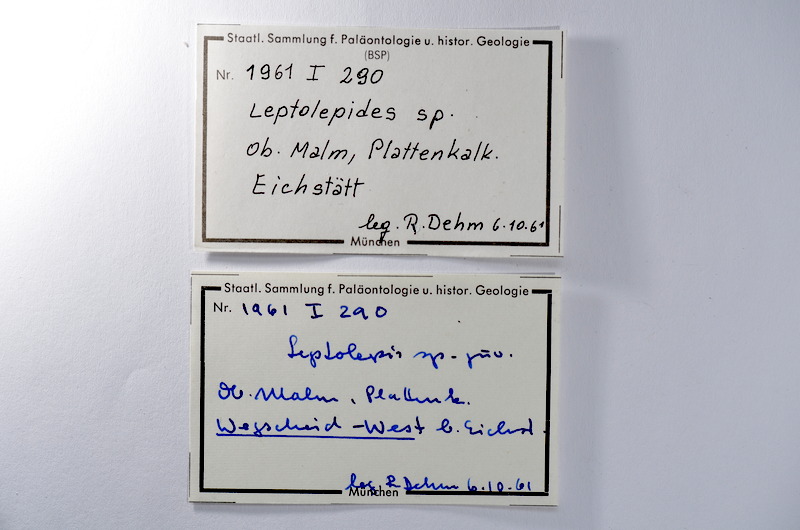 Staatl. Sammlung f. Paläontologie u. histor. Geologie
(BSP)
Nr. 1961 I 290
Leptolepides sp.
Ob. Malm, Plattenkalk.
Eichstätt
leg. R. Dehm 6.10.61
München
Staatl. Sammlung f. Paläontologie u. histor. Geologie
Nr. 1961 I 290
Leptolepis sp. juv.
Ob. Malm, Plattenk.
Wegscheid-West b. Eichst.
leg. R. Dehm 6.10.61
München